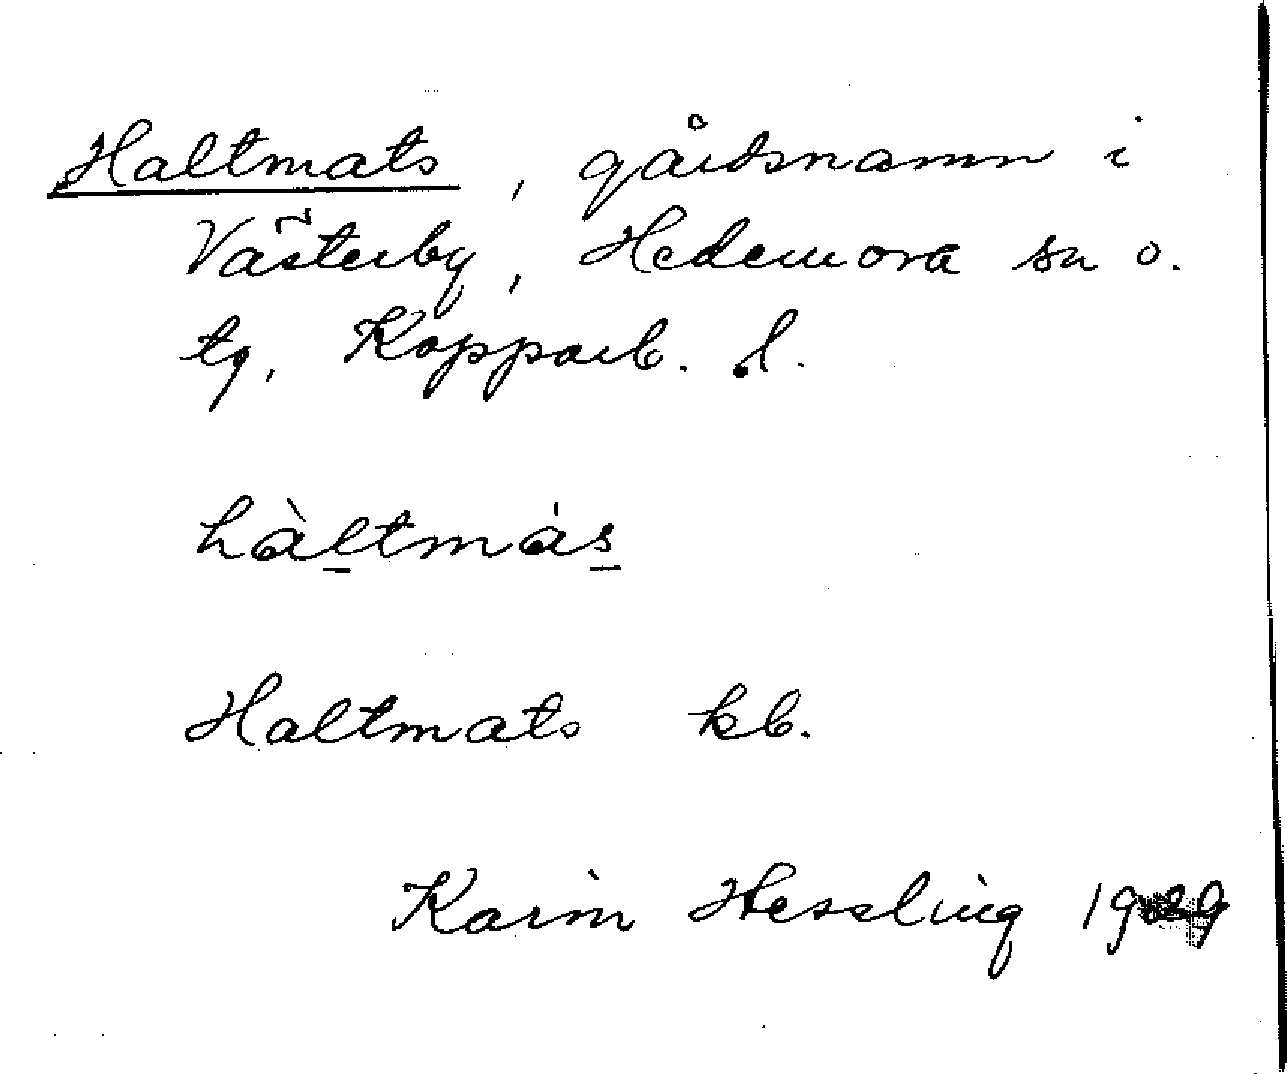 Haltmats, gårdsnamn i
Västerby, Hedemora sn o.
tg, Kopparb. l.
hàltmás
Haltmats kb.
Karin Hessling